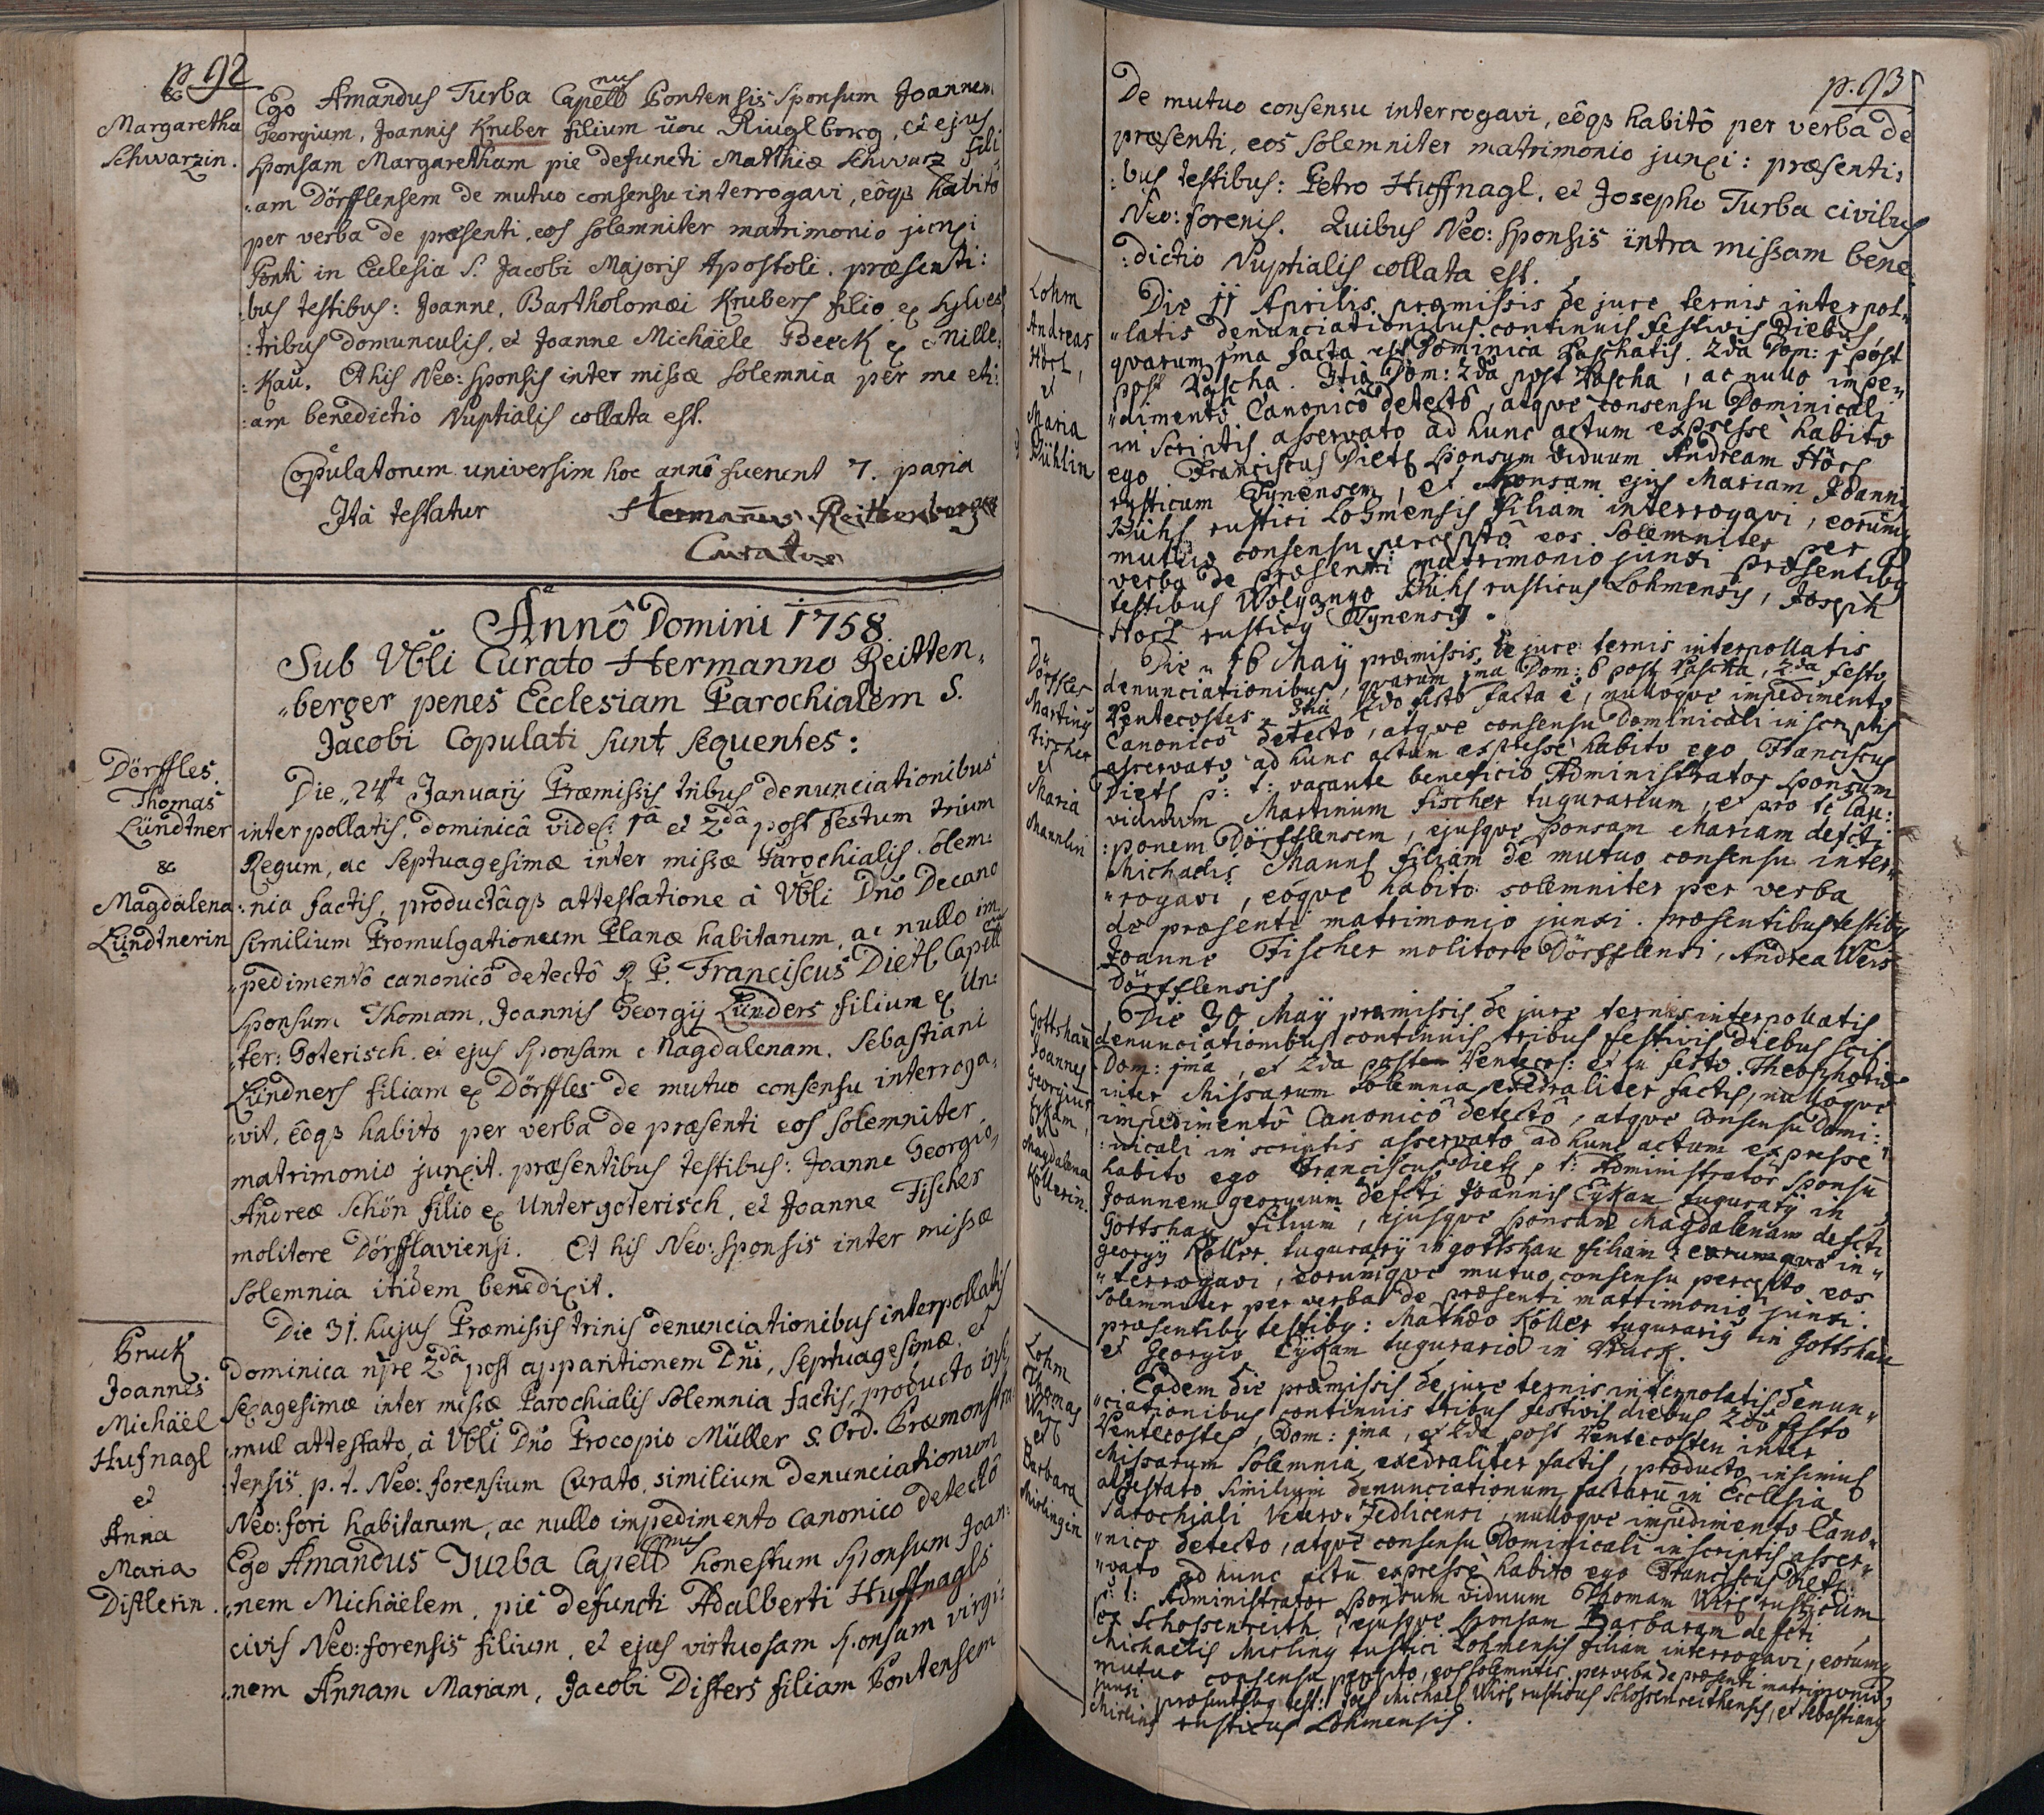 p. 92
&
Margaretha
Schwarzin.
Ego Amandus Turba Capellnus Pontensis Sponsum Joannem
Georgium, Joannis Kruber filium von Ringlberg, et ejus
Sponsam Margaretham pie defuncti Matthiæ Schwarz fili
:am Dörfflensem de mutuo consensu interrogavi, eôqs habitô
per verba de præsenti, eos solemniter matrimonio junxi
Ponti in Ecclesia S. Jacobi Majoris Apostoli. præsenti:
bus testibus: Joanne, Bartholomæi Krubers filio ex Sylves
:tribus domunculis, et Joanne Michäele Beeck ex Mille:
:kau. Et his Neo: Sponsis inter missæ solemnia per me eti:
:am benedictio Nuptialis collata est.
Copulatorum universim hoc annô fuerunt 7. paria
Ita testatur Hermanus Reittenberger
Curatus
Annô Domini 1758
Sub Vbli Curato Hermanno Reitten„
„berger penes Ecclesiam Parochialem S.
Jacobi Copulati sunt sequentes:
Dörffles.
Thomas
Lündtner
&
Magdalena
Lündtnerin
Die „24ta Januarij Præmissis tribus denunciationibus
interpollatis, dominicâ videl: 1â et 2dâ post Festum trium
Regum, ac Septuagesimæ inter missæ Parochialis solem:
:nia factis, productâqs attestatione â Vbli Dnô Decano
similium Promulgationum Planæ habitarum, ac nullo im
„pedimentô canonicô detectô R. P. Franciscus Dietl Capellnus
Sponsum Thomam, Joannis Georgij Lünders filium ex Un:
„ter: Goterisch. et ejus Sponsam Magdalenam, Sebastiani
Lündners filiam ex Dörffles de mutuo consensu interroga„
„vit, eôqs habito per verba de præsenti eos solemniter
matrimonio junxit. præsentibus testibus: Joanne Georgio,
Andreæ Schön filio ex Untergoterisch, et Joanne Fischer
molitore Dörfflaviensi. Et his Neo: Sponsis inter missæ
solemnia itidem benedixit.
Bruck
Joannes
Michäel
Hufnagl
et
Anna
Maria
Distlerin.
Die 31. hujus Præmissis trinis denunciationibus interpollatis
Dominica npe 2dâ post apparitionem Dni, Septuagesimæ, et
sexagesimæ inter missæ Parochialis solemnia factis, producto insi„
„mul attestato, â Vbli Dnô Procopio Müller S. Ord. Præmonstra:
tensis p. t. Neo: forensium Curato, similium denunciationum
Neo: fori habitarum, ac nullo impedimento canonico detectô
Ego Amandus Turba Capellnus honestum Sponsum Joan:
„nem Michäelem, pie defuncti Adalberti Huffnagls
civis Neo: forensis filium, et ejus virtuosam Sponsam virgi:
„nem Annam Mariam, Jacobi Distlers filiam Pontensem
p. 93
De mutuo consensu interrogavi, eôqs habitô per verba de
præsenti, eos solemniter matrimonio junxi: præsenti:
:bus testibus: Petro Huffnagl, et Josepho Turba civibus
Neo: forensis. Quibus Neo: Sponsis intra missam bene
:dictio Nuptialis collata est.
Lohm
Andreas
Hörl,
et
Maria
Bühlin
Die 11 Aprilis præmissis de jure ternis interpol„
„latis denunciationibus continuis festivis Diebus,
quarum 1ma facta est Dominica Paschatis. 2da Dom: 1 post
post Pascha. 3tia Dom: 2da post Pascha, ac nullo impe„
„dimentô Canonicô detectô, atque consensu Dominicali
in scriptis asservato ad hunc actum expresse habito
ego Franciscus Dietl Sponsum viduum Andream Hörl
rusticum Tynensem, et Sponsam ejus Mariam Joannis
Bühl rustici Lohmensis filiam interrogavi, eorumq
mutuo consensu perceptô eos solemniter per
verba de præsenti matrimonio junxi præsentibq
testibus Wolgango Bühl rusticus Lohmensis, Joseph
Hörl rusticq Tynensis.
Dörffles
Martinq
Fischer
et
Maria
Mannlin
Die „16 Maij præmissis de jure ternis interpollatis
denunciationibus, quarum 1ma Dom: 6 post Pascha, 2da festo
Pentecostes, 3tia 2do festo facta ê, nulloque impedimento
Canonicô detecto, atque consensu Dominicali in scriptis
asservato ad hunc actum expresse habito ego Franciscus
Dietl p: t: vacante beneficio Administrator Sponsum
viduum Martinum Fischer tugurarium, et pro te cau:
:ponem Dörfflensem, ejusque Sponsam Mariam defcti
Michaelis Mannl filiam de mutuo consensu inter„
„rogavi, eôque habito solemniter per verba
de præsenti matrimonio junxi. præsentibus testibq
Joanne Fischer molitore Dörfflensi, Andrea Weis
Dörfflensis
Gottshau
Joannes
Georgius
Eykam,
et
Magdalena
Kollerin.
Die 30 Maij præmissis de jure ternis interpollatis
denunciationibus continuis tribus festivis diebus scil:
Dom: 1ma, et 2da post Pentecos: et in festo Theophoriæ
inter Missarum Solemnia exedraliter factis, nulloque
impedimentô Canonicô detectô, atque Consensu Domi:
:nicali in scriptis asservato ad hunc actum expresse
habito ego Franciscus Dietl p: t: Administrator Sponsu
Joannem georgium defcti Joannis Eykam tugurarij in
Gottshau filium, ejusque Sponsam Magdalenam defcti
georgij Koller tugurarij in gottshau filiam in„
„terrogavi, eorumque mutuo consensu percepto eos
solemniter per verba de præsenti matrimonio junxi.
præsentibq testibq: Mathæo Koller tugurarij in Gottshau
et Georgio Eykam tugurario in Bruck.
Lohm
Thomas
Wirl
et
Barbara
Mislingin
Eadem die præmissis de jure ternis interpolatis denun„
„ciationibus continuis tribus festivis diebus 2do festo
Pentecostes, Dom: 1ma, et 2da post Pentecosten inter
Missarum Solemnia exedraliter factis, producto insimul
attestato similium denunciationum factaru in Ecclesia
Parochiali Vetero: Zedlicensi, nulloque impedimento Cano„
„nico detecto, atque consensu Dominicali in scriptis asser„
„vato ad hunc actu expresse habito ego Franciscus Dietl
p: t: Administrator Sponsum viduum Thomam Wirl rusticum
ex Schossenreith, ejusque Sponsam Barbaram defcti
Michaelis Misling rustici Lohmensis filiam interrogavi, eorumq
mutuo consensu percepto, eos solemniter per verba de præsenti matrimonio
junxi præsentibq test: Michael Wirl rusticus Schossenreithensis, et Sebastianq
Misling rusticus Lohmensis.